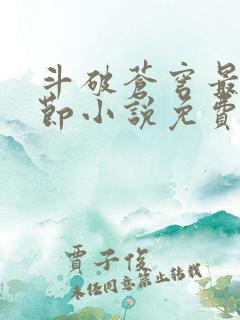 斗破蒼穹最
節小說免費
賈子俊
未任同意禁止转载